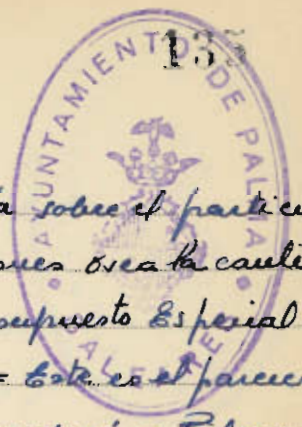 135
AYUNTAMIENTO DE PALMA
BALEARES
a sobre el particu
ones ósea la canti
supuesto Especial
= Este es el parece